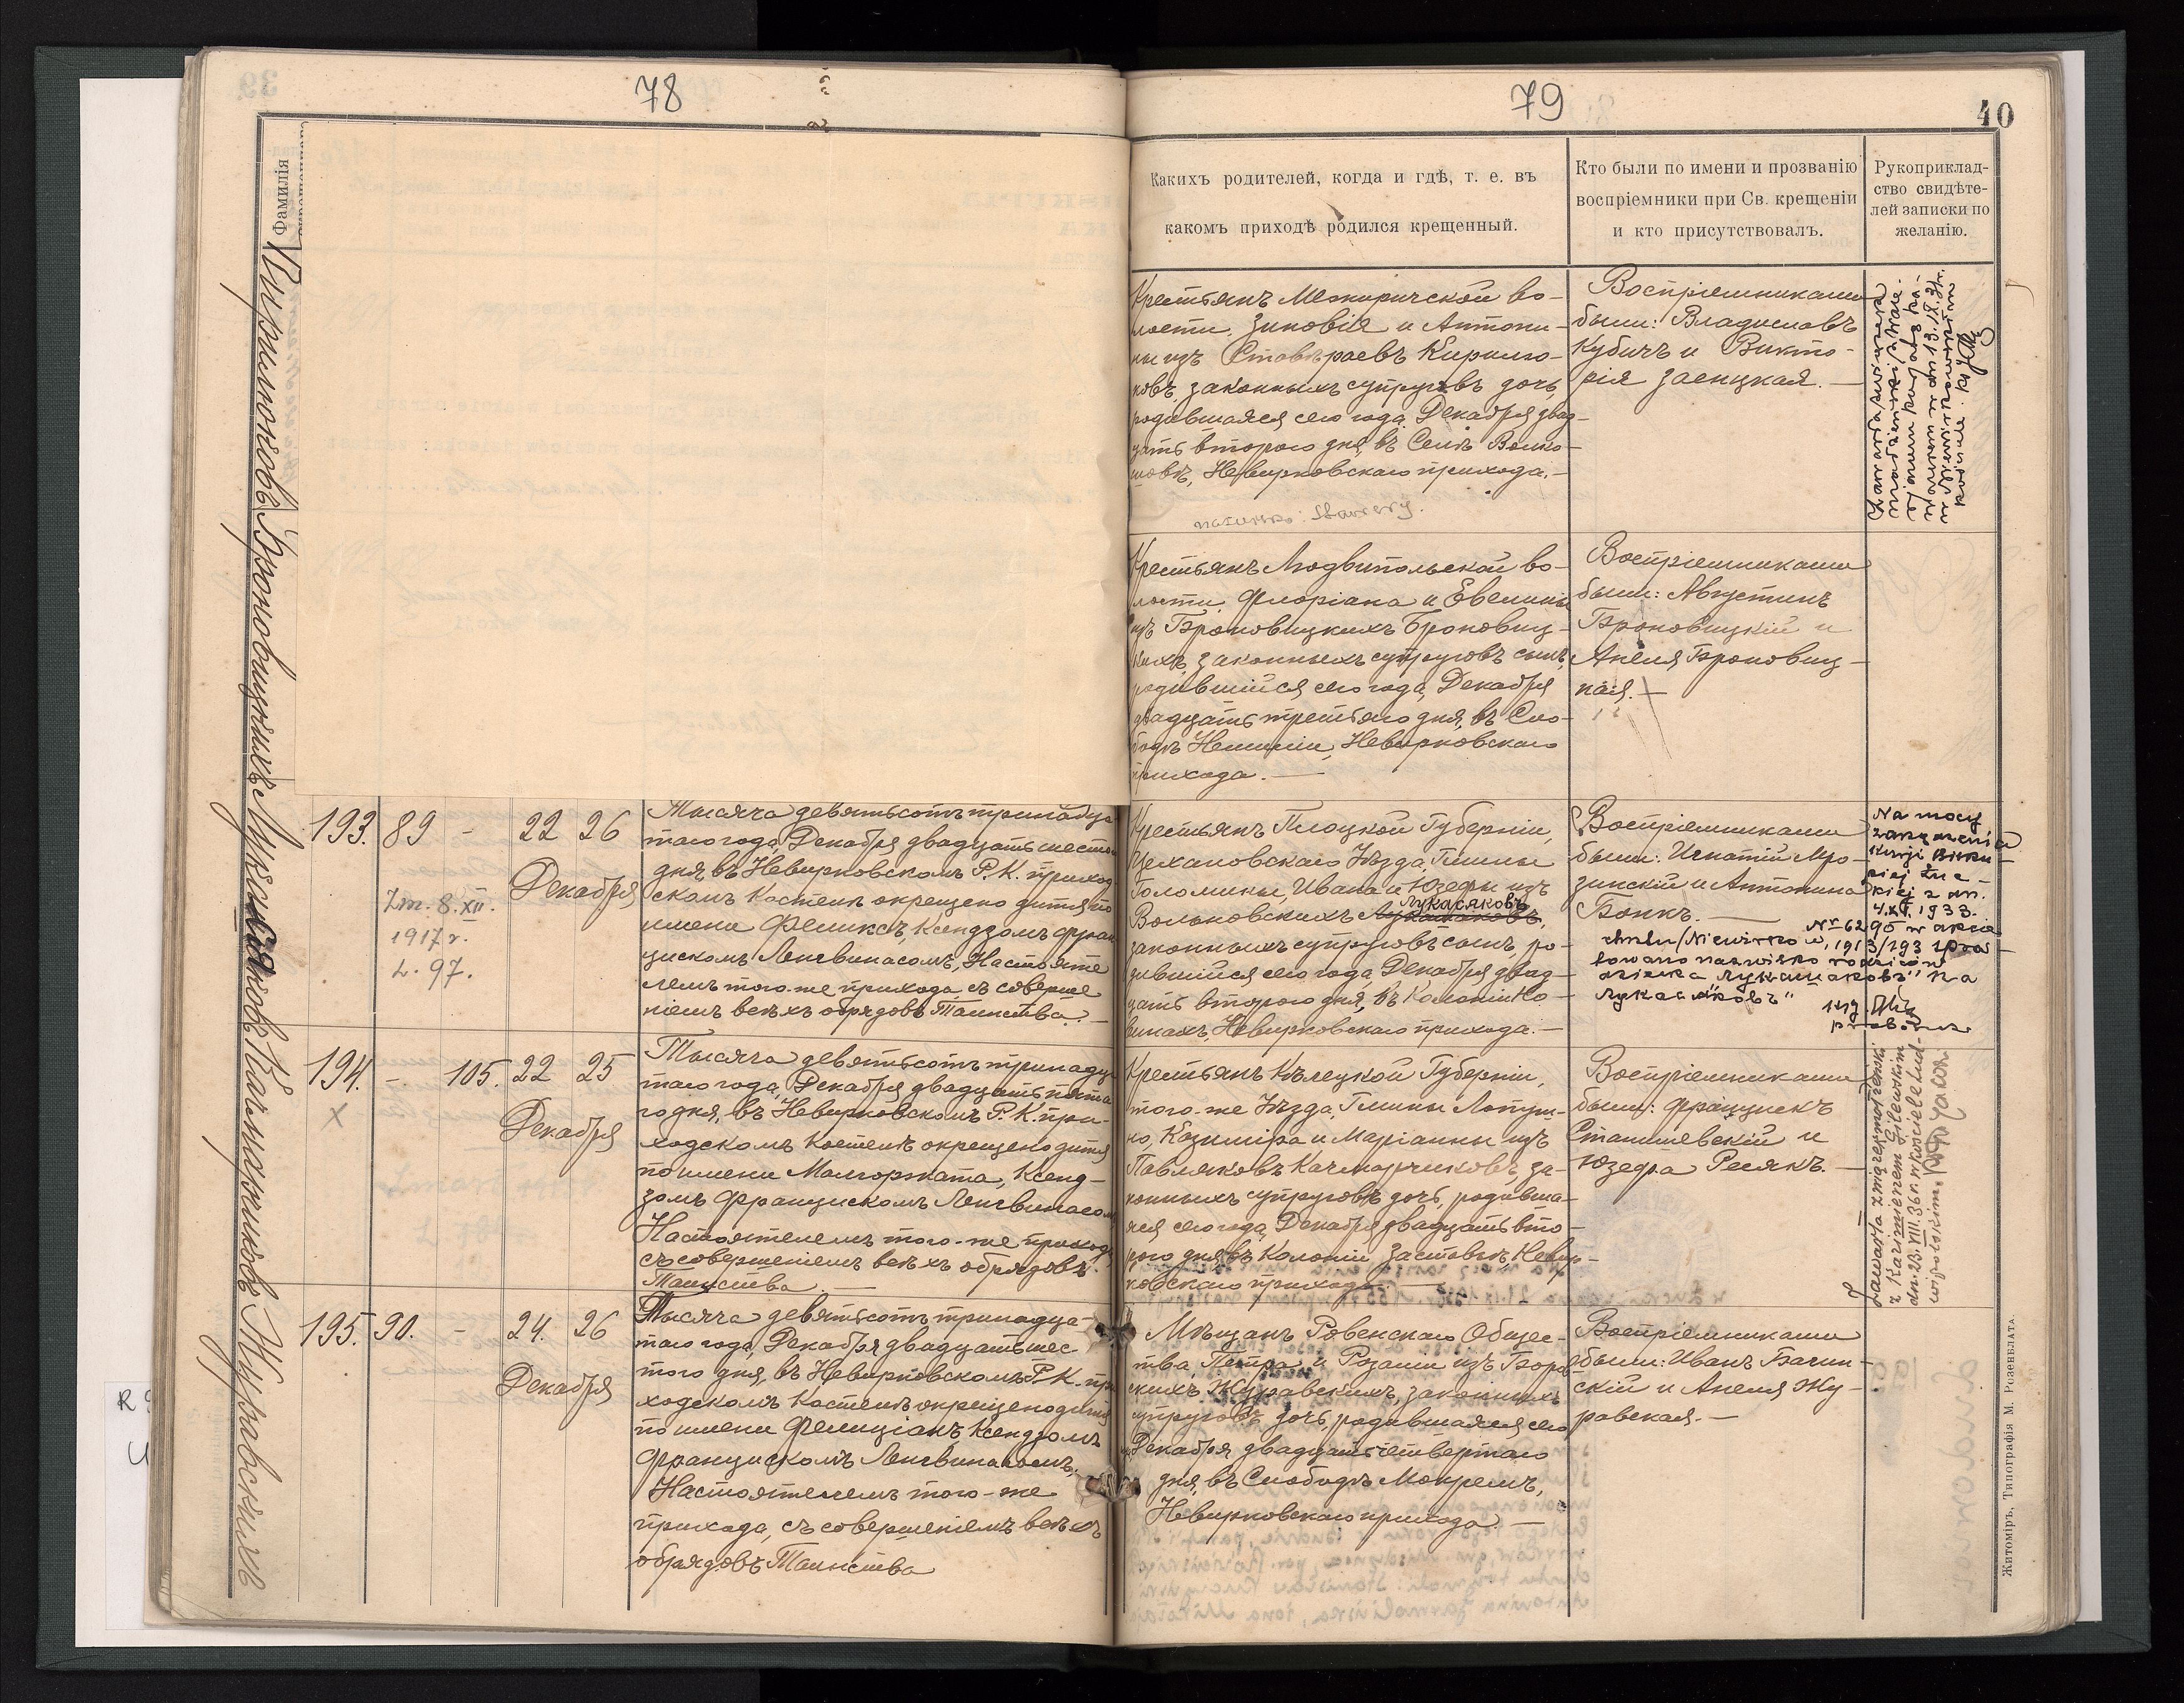 78
79
40
Фамилія
Кирилюковъ
Броновицкихъ
Лукасяковъ
Качмарчиковъ
Журавскихъ
Каких родителей, когда и гдѣ, т. е. въ
какомъ приходѣ родился крещенный.
Кто были по имени и прозванію
воспріемники при Св. крещеніи
и кто присутствовалъ.
Рукоприклад-
ство свидѣте-
лей записки по
желанію.
Крестьянъ Межиричской во-
лости, Зиновія и Антони-
ны изъ Кирилю-
ковъ, законныхъ супруговъ дочь,
родившаяся сего года, Декабря двад-
цать второго дня, въ Селѣ Волко-
шовѣ, Невирковскаго прихода.—
nazwisko:
Воспріемниками
были: Владиславъ
Кубичъ и Викто-
рія Заенцкая.—
Крестьянъ Людвипольской во-
лости, Флоріана и Евелины
изъ Броновицкихъ Броновиц-
кихъ, законныхъ супруговъ сынъ,
родившійся сего года, Декабря
двадцать третьяго дня, въ Сло-
бодѣ Невирковскаго
прихода.—
Воспріемниками
были: Августинъ
Броновицкій и
Анеля Броновиц-
кая.—
193. 89 - 22 26
Декабря
Zm. 8.XII.
1917 r.
L. 97.
Тысяча девятьсотъ тринадца
таго года, Декабря двадцать шесто
дня, въ Невирковскомъ Р. К. приход
скомъ Костелѣ окрещено дитя по
имени Феликсъ, Ксендзомъ Фран
цискомъ Ленгвинасомъ, Настояте
лемъ того-же прихода, съ соверше
ніемъ всѣхъ обрядовъ Таинства.—
Крестьянъ Плоцкой Губерніи,
Цехановскаго Уѣзда, Гмины
Голомины, Ивана и Юзефы изъ
Лукасяковъ
Вольковскихъ Лукашаковъ,
законныхъ супруговъ сынъ, ро-
дившійся сего года, Декабря двад-
цать второго дня, въ Колоніи Ко-
Невирковскаго прихода.—
Воспріемниками
были: Игнатій Мро-
зинскій и Антонина
Бонкъ.—
Na mocy
zarządzenia
Kurji Bisku-
piej Łuc-
kiej z dn.
4.XI.1933.
Nr 6290 w akcie
chrztu /Niewirków, 1913/193 spros-
towano nazwisko rodziców
dziecka "Лукашаковъ" na
"Лукасяковъ"
proboszcz
194. - 105. 22 25
X
Декабря
Тысяча девятьсотъ тринадца
таго года, Декабря двадцать пята
го дня, въ Невирковскомъ Р. К. при-
ходскомъ Костелѣ окрещено дитя
по имени Малгоржата, Ксенд-
зомъ Францискомъ Ленгвинасомъ
Настоятелемъ того-же прихода,
съ совершеніемъ всѣхъ обрядовъ
Таинства.—
Крестьянъ Кѣлецкой Губерніи,
того-же Уѣзда, Гмины Лопуш-
но, Казиміра и Маріанны изъ
Павляковъ Качмарчиковъ, за-
конныхъ супруговъ дочь, родивша-
яся сего года, Декабря двадцать вто-
рого дня, въ Колоніи Заставье, Невир-
ковскаго прихода.—
Воспріемниками
были: Францишекъ
Станишевскій и
Юзефа Ресякъ.—
Zawarła związek małżeński
z Kazimierzem Gilewskim
dn. 23.VIII.36 r. w kościele Lud-
wipolskim.
195. 90. - 24. 26
Декабря
Тысяча девятьсотъ тринадца-
таго года, Декабря двадцать шес-
того дня, въ Невирковскомъ Р. К. при
ходскомъ Костелѣ окрещено дитя
по имени Фелиціанъ, Ксендзомъ
Францискомъ Ленгвинасомъ,
Настоятелемъ того-же
прихода, съ совершеніемъ всѣхъ
обрядовъ Таинства
Мѣщанъ Ровенскаго Общес-
тва, Петра и Розаліи изъ
Журавскихъ, законныхъ
супруговъ дочь, родившаяся сего
Декабря двадцать четвертаго
дня, въ Слободѣ Мокремъ,
Невирковскаго прихода.—
Воспріемниками
были: Иванъ Бачин-
скій и Анеля Жу-
равская.—
Житоміръ, Типографія М. Розенблата.